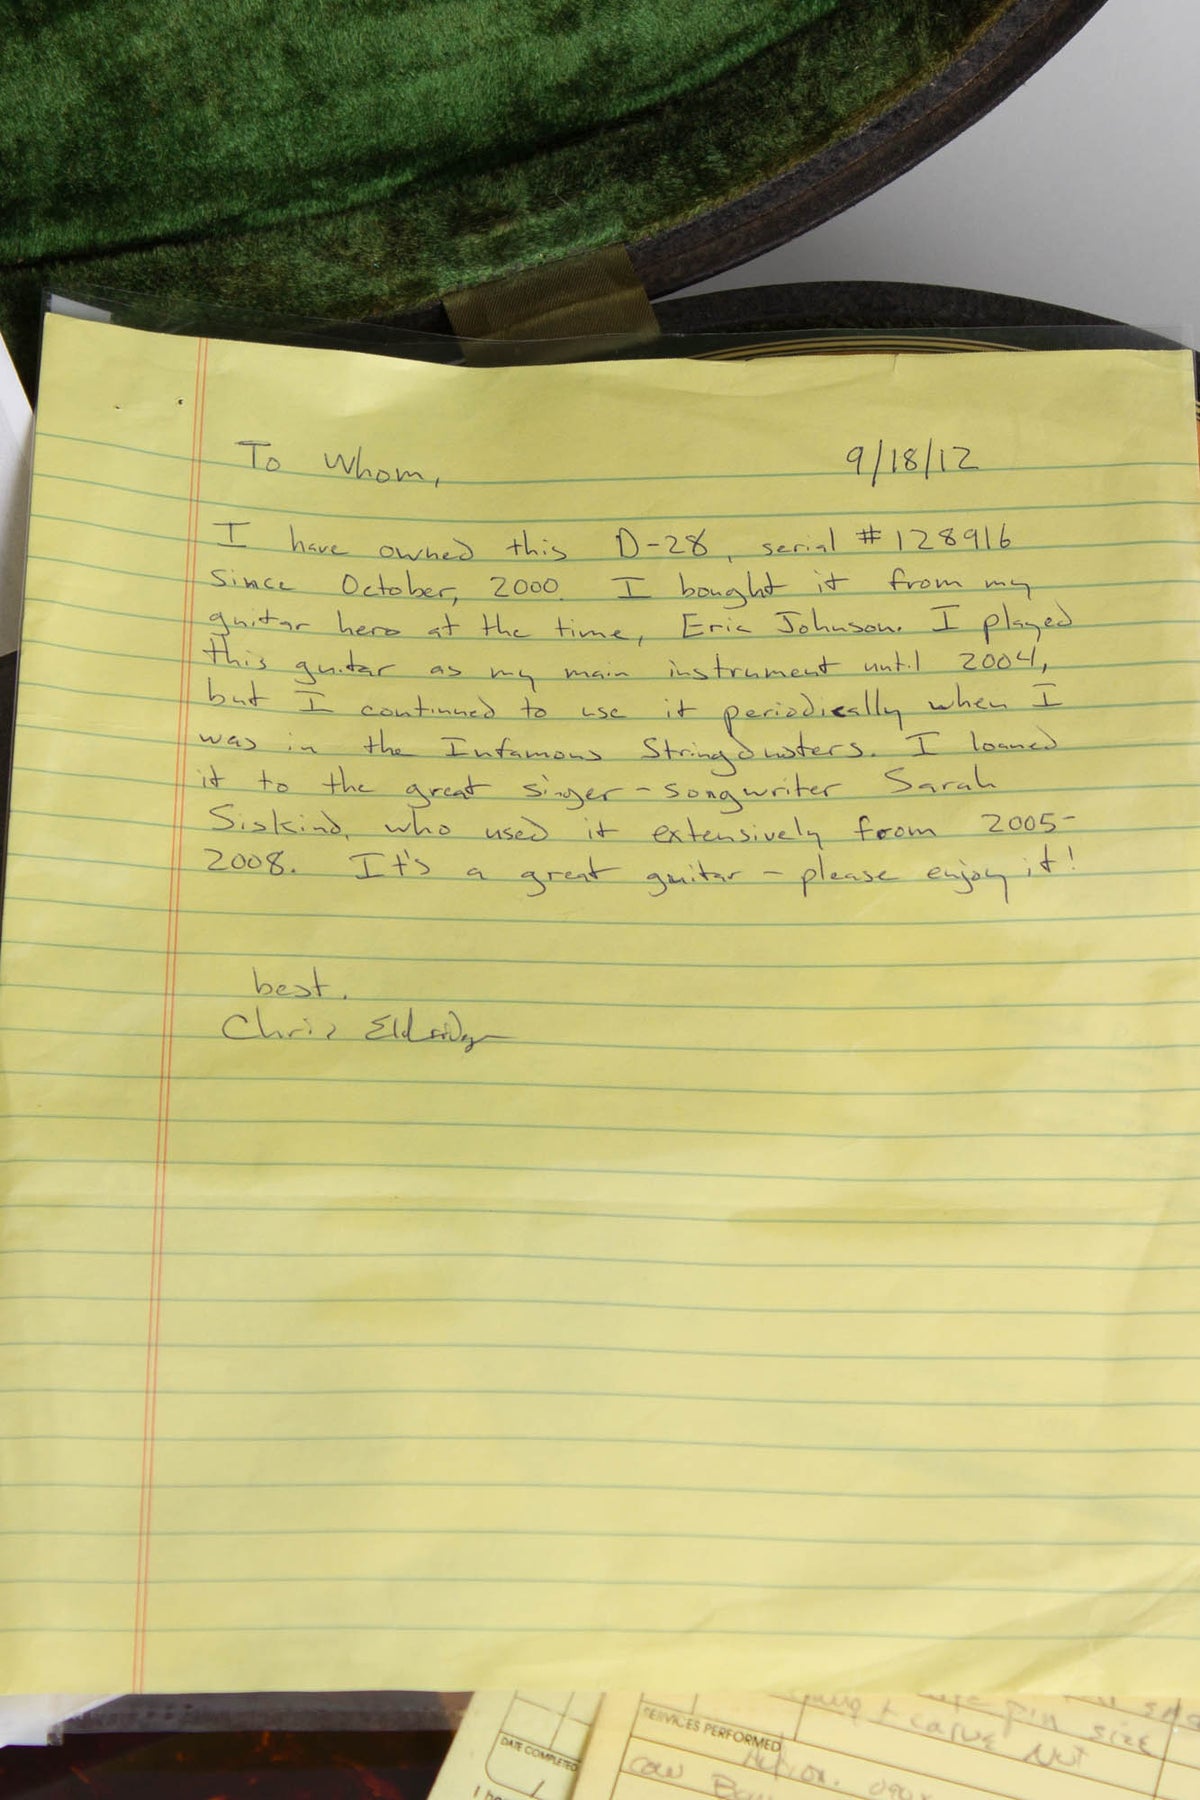 To Whom, 9/18/12
I have owned this D-28, serial #128916
since October, 2000. I bought it from my
guitar hero at the time, Eric Johnson. I played
this guitar as my main instrument until 2004,
but I continued to use it periodically when I
was in the Infamous Stringdusters. I loaned
it to the great singer-songwriter Sarah
Siskind, who used it extensively from 2005-
2008. It's a great guitar - please enjoy it!
best,
Chris Eldridge
pin size
+ carve Nut
SERVICES PERFORMED
DATE COMPLETED